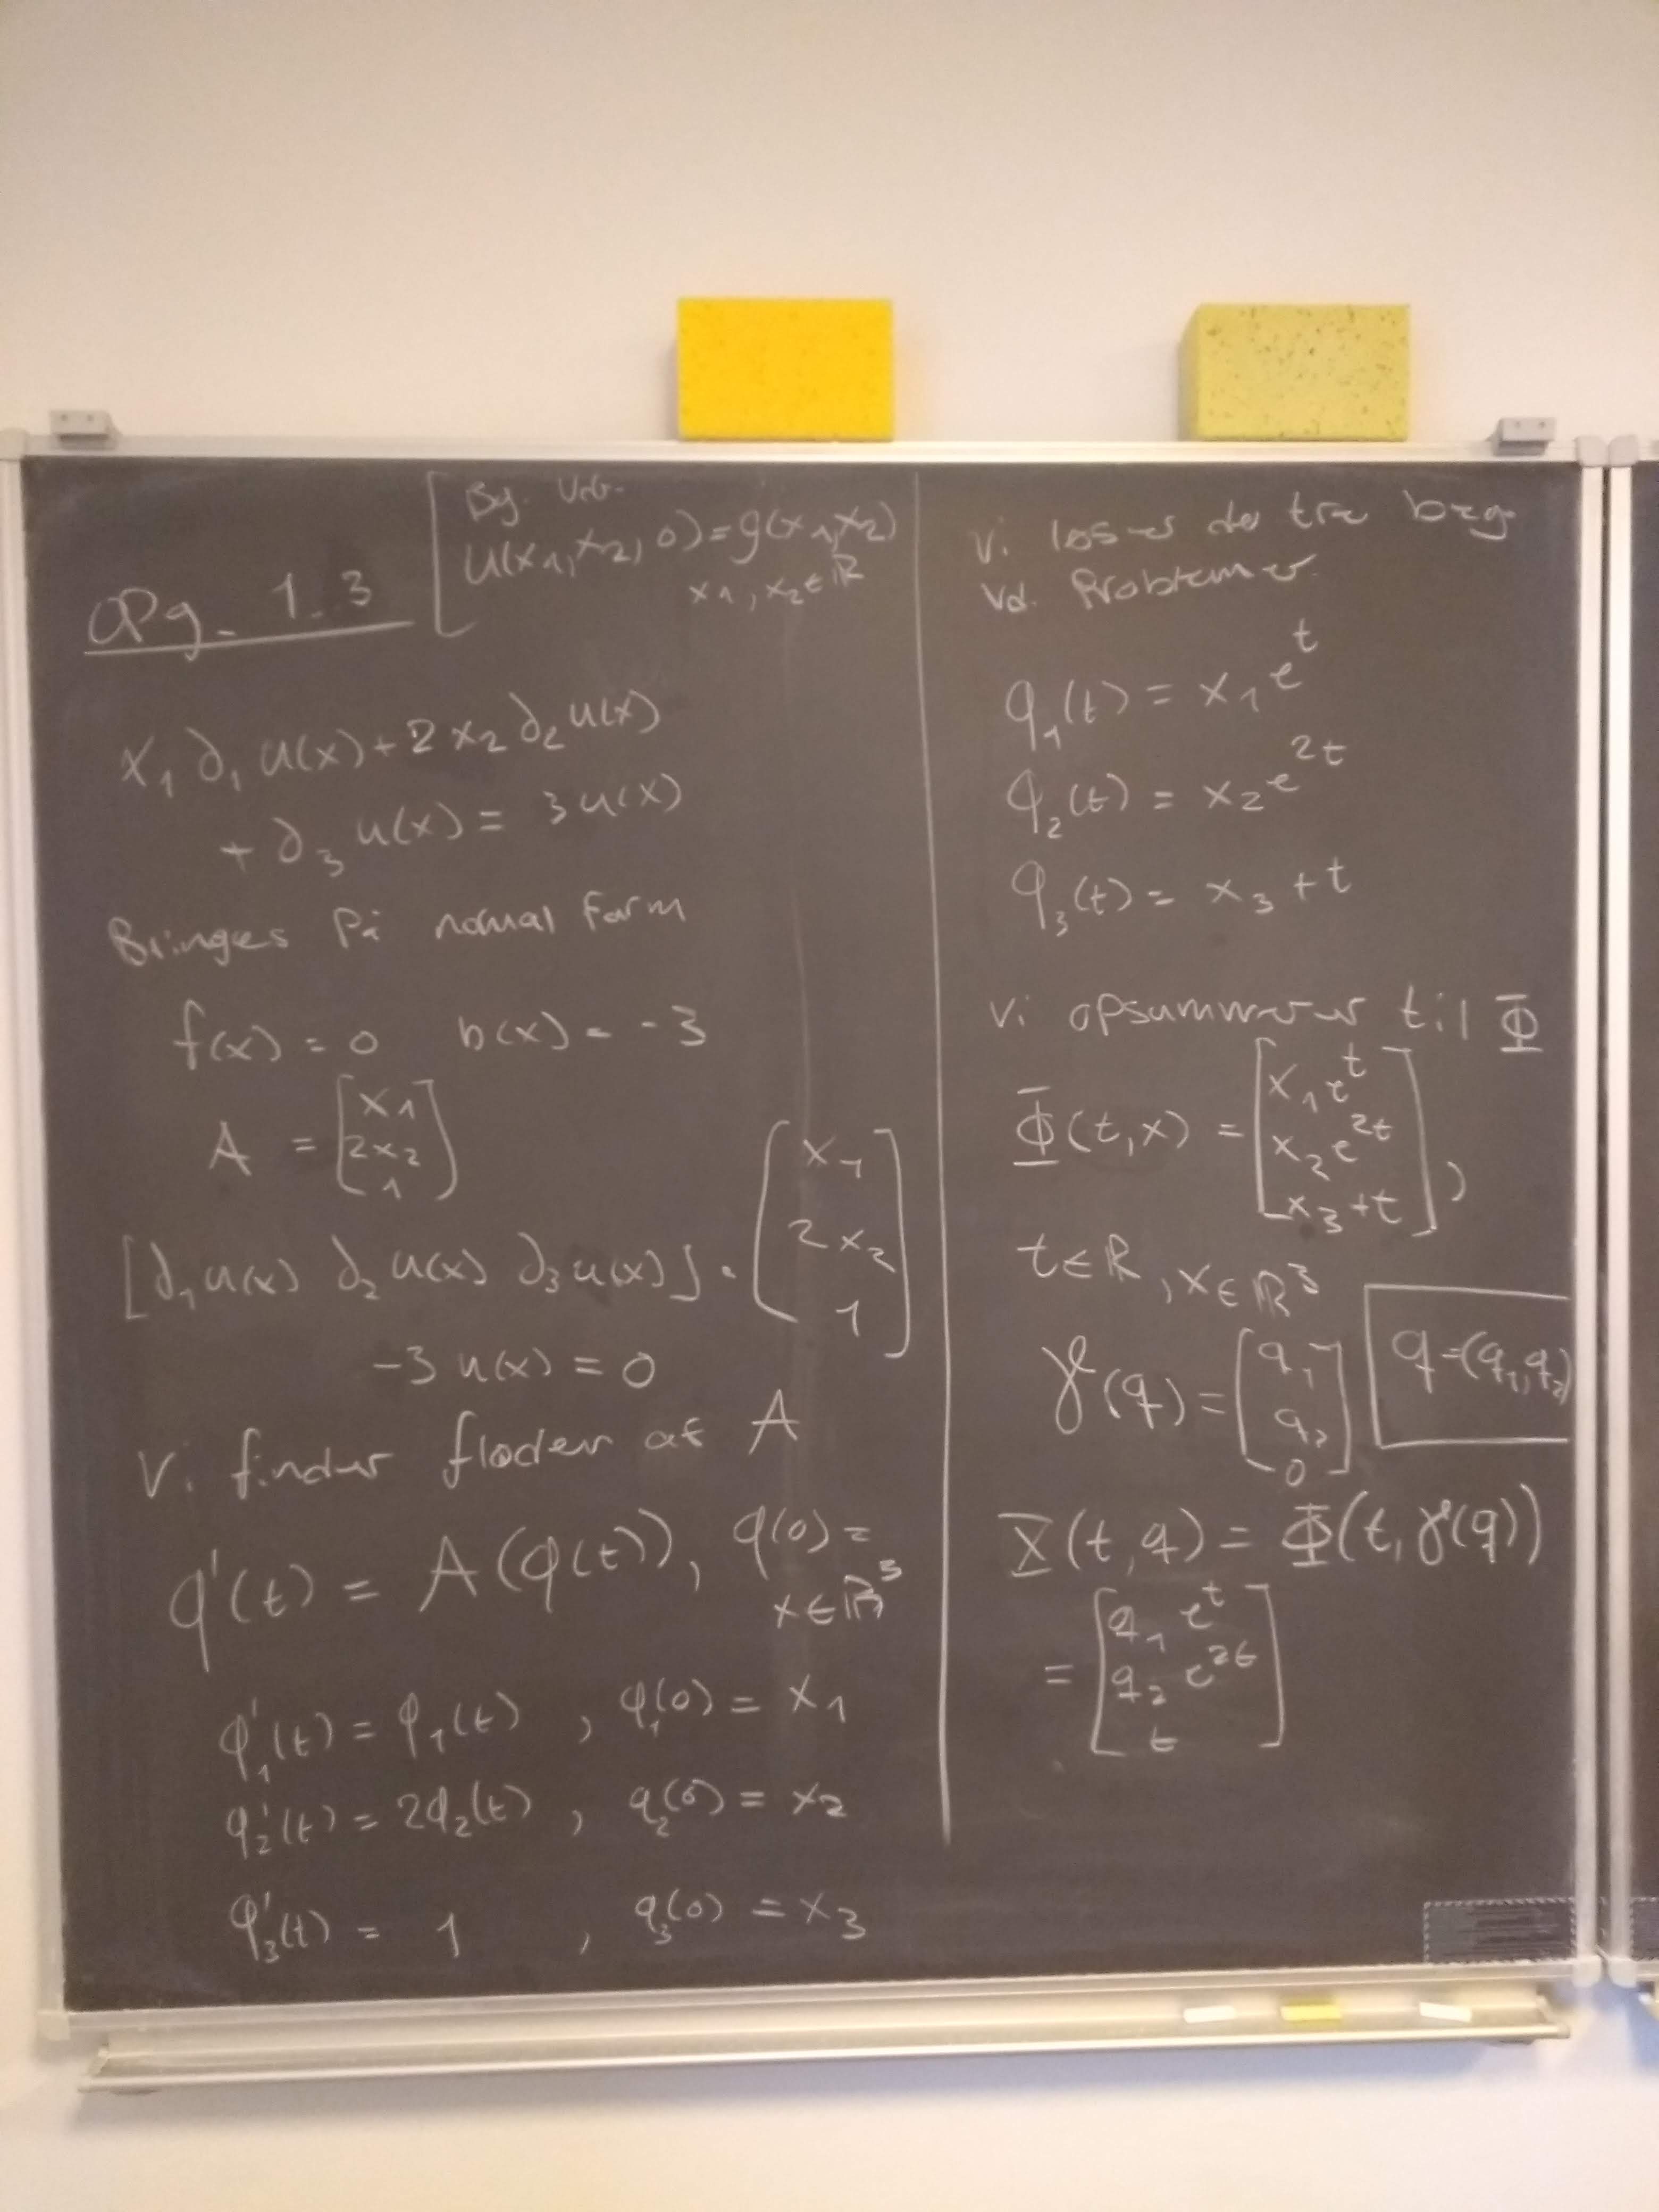 Opg. 1.3
Bg. Vrb.
u(x₁,x₂,0)=g(x₁,x₂)
x₁,x₂∈ℝ
x₁∂₁u(x)+2x₂∂₂u(x)
+∂₃u(x)=3u(x)
Bringes På normal form
f(x)=0 b(x)=-3
A = [x₁
2x₂
1]
[∂₁u(x) ∂₂u(x) ∂₃u(x)]·[x₁
2x₂
1]
-3u(x)=0
Vi finder floden af A
φ'(t) = A(φ(t)), φ(0)=
x∈ℝ³
φ₁'(t)=φ₁(t), φ₁(0)=x₁
φ₂'(t)=2φ₂(t), φ₂(0)=x₂
φ₃'(t)=1, φ₃(0)=x₃
Vi løser de tre beg.
Vd. Problemer.
φ₁(t)=x₁eᵗ
φ₂(t)=x₂e²ᵗ
φ₃(t)=x₃+t
Vi opsummerer til Φ
Φ(t,x)=[x₁eᵗ
x₂e²ᵗ
x₃+t],
t∈ℝ, x∈ℝ³
γ(q)=[q₁
q₂
0]
q=(q₁,q₂)
X(t,q)=Φ(t,γ(q))
=[q₁eᵗ
q₂e²ᵗ
t]